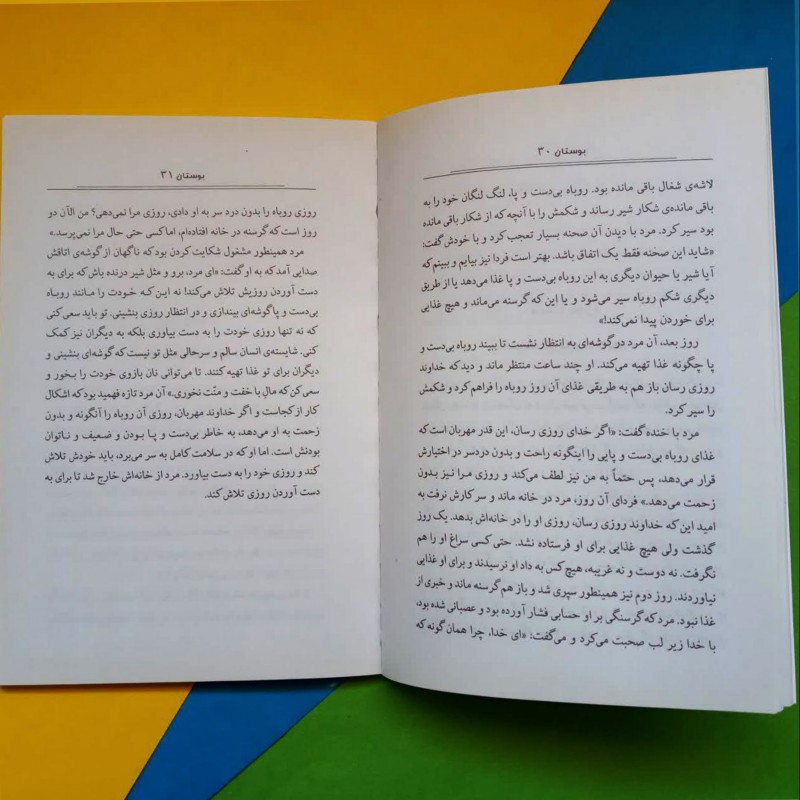 بوستان ۳۰
لاشه‌ی شغال باقی مانده بود. روباه بی‌دست و پا، لنگ لنگان خود را به
باقی مانده‌ی شکار شیر رساند و شکمش را با آنچه که از شکار باقی مانده
بود سیر کرد. مرد با دیدن آن صحنه بسیار تعجب کرد و با خودش گفت:
«شاید این صحنه فقط یک اتفاق باشد. بهتر است فردا نیز بیایم و ببینم که
آیا شیر یا حیوان دیگری به این روباه بی‌دست و پا غذا می‌دهد یا از طریق
دیگری شکم روباه سیر می‌شود و یا این که گرسنه می‌ماند و هیچ غذایی
برای خوردن پیدا نمی‌کند!»
روز بعد، آن مرد در گوشه‌ای به انتظار نشست تا ببیند روباه بی‌دست و
پا چگونه غذا تهیه می‌کند. او چند ساعت منتظر ماند و دید که خداوند
روزی رسان باز هم به طریقی غذای آن روز روباه را فراهم کرد و شکمش
را سیر کرد.
مرد با خنده گفت: «اگر خدای روزی رسان، این قدر مهربان است که
غذای روباه بی‌دست و پایی را اینگونه راحت و بدون دردسر در اختیارش
قرار می‌دهد، پس حتماً به من نیز لطف می‌کند و روزی مرا نیز بدون
زحمت می‌دهد.» فردای آن روز، مرد در خانه ماند و سر کارش نرفت به
امید این که خداوند روزی رسان، روزی او را در خانه‌اش بدهد. یک روز
گذشت ولی هیچ غذایی برای او فرستاده نشد. حتی کسی سراغ او را هم
نگرفت. نه دوست و نه غریبه، هیچ کس به داد او نرسیدند و برای او غذایی
نیاوردند. روز دوم نیز همینطور سپری شد و باز هم گرسنه ماند و خبری از
غذا نبود. مرد که گرسنگی بر او حسابی فشار آورده بود و عصبانی شده بود،
با خدا زیر لب صحبت می‌کرد و می‌گفت: «ای خدا، چرا همان گونه که
بوستان ۳۱
روزی روباه را بدون درد سر به او دادی، روزی مرا نمی‌دهی؟ من الآن دو
روز است که گرسنه در خانه افتاده‌ام، اما کسی حتی حال مرا نمی‌پرسد.»
مرد همینطور مشغول شکایت کردن بود که ناگهان از گوشه‌ی اتاقش
صدایی آمد که به او گفت: «ای مرد، برو و مثل شیر درنده باش که برای به
دست آوردن روزیش تلاش می‌کند! نه این کـه خودت را مانند روبـاه
بی‌دست و پا گوشه‌ای بیندازی و در انتظار روزی بنشینی. تو باید سعی کنی
که نه تنها روزی خودت را به دست بیاوری بلکه به دیگران نیز کمک
کنی. شایسته‌ی انسان سالم و سرحالی مثل تو نیست که گوشه‌ای بنشینی و
دیگران برای تو غذا تهیه کنند. تا می‌توانی نان بازوی خودت را بخور و
سعی کن که مالِ با خفت و منّت نخوری.» آن مرد تازه فهمید بود که اشکال
کار از کجاست و اگر خداوند مهربان، روزی آن روباه را آنگونه و بدون
زحمت به او می‌دهد، به خاطر بی‌دست و پـا بـودن و ضـعیف و نـاتوان
بودنش است. اما او که در سلامت کامل به سر می‌برد، باید خودش تلاش
کند و روزی خود را به دست بیاورد. مرد از خانه‌اش خارج شد تا برای به
دست آوردن روزی تلاش کند.